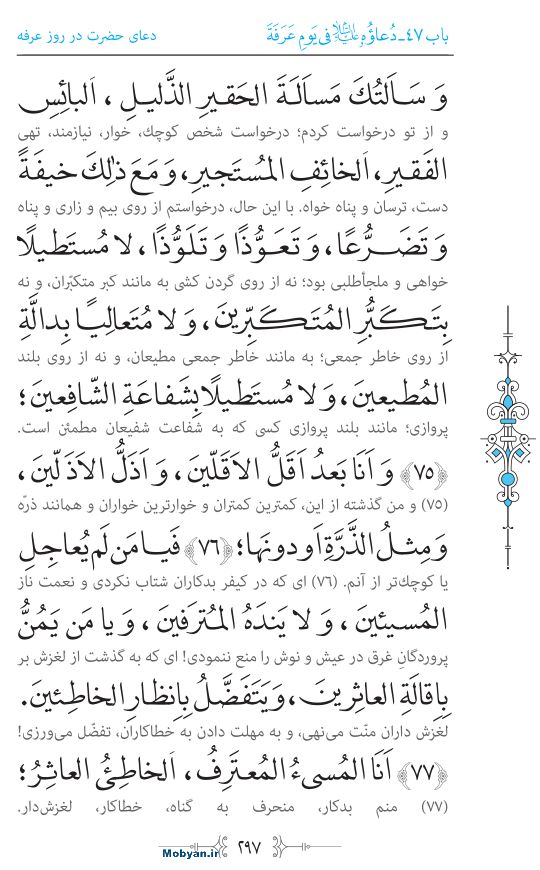 باب ۴۷ـ دُعاؤُهُ عليه‌السلام فى يَومِ عَرَفَةَ
دعای حضرت در روز عرفه
وَ سَاَلتُكَ مَساَلَةَ الحَقيرِ الذَّليلِ ، اَلبائِسِ
و از تو درخواست کردم؛ درخواست شخص کوچک، خوار، نیازمند، تهی
الفَقيرِ، اَلخائِفِ المُستَجيرِ، وَ مَعَ ذٰلِكَ خيفَةً
دست، ترسان و پناه خواه. با این حال، درخواستم از روی بیم و زاری و پناه
وَ تَضَرُّعًا، وَ تَعَوُّذًا وَ تَلَوُّذًا ، لا مُستَطيلًا
خواهی و ملجأطلبی بود؛ نه از روی گردن کشی به مانند کبر متکبّران، و نه
بِتَكَبُّرِ المُتَكَبِّرينَ، وَ لا مُتَعالِيًا بِدالَّةِ
از روی خاطر جمعی؛ به مانند خاطر جمعی مطیعان، و نه از روی بلند
المُطيعينَ، وَ لا مُستَطيلًا بِشَفاعَةِ الشّافِعينَ؛
پروازی؛ مانند بلند پروازی کسی که به شفاعت شفیعان مطمئن است.
﴿۷۵﴾ وَ اَنَا بَعدُ اَقَلُّ الاَقَلّينَ، وَ اَذَلُّ الاَذَلّينَ،
(۷۵) و من گذشته از این، کمترین کمتران و خوارترین خواران و همانند ذرّه
وَ مِثلُ الذَّرَّةِ اَو دونَها؛ ﴿۷۶﴾ فَيا مَن لَم يُعاجِلِ
یا کوچک‌تر از آنم. (۷۶) ای که در کیفر بدکاران شتاب نکردی و نعمت ناز
المُسيئينَ ، وَ لا يَندَهُ المُترَفينَ ، وَ يا مَن يَمُنُّ
پروردگانِ غرق در عیش و نوش را منع ننمودی! ای که به گذشت از لغزش بر
بِاِقالَةِ العاثِرينَ، وَ يَتَفَضَّلُ بِاِنظارِ الخاطِئينَ.
لغزش داران منّت می‌نهی، و به مهلت دادن به خطاکاران، تفضّل می‌ورزی!
﴿۷۷﴾ اَنَا المُسىءُ المُعتَرِفُ، اَلخاطِئُ العاثِرُ؛
(۷۷) منم بدکار، منحرف به گناه، خطاکار، لغزش‌دار.
۲۹۷
Mobyan.ir